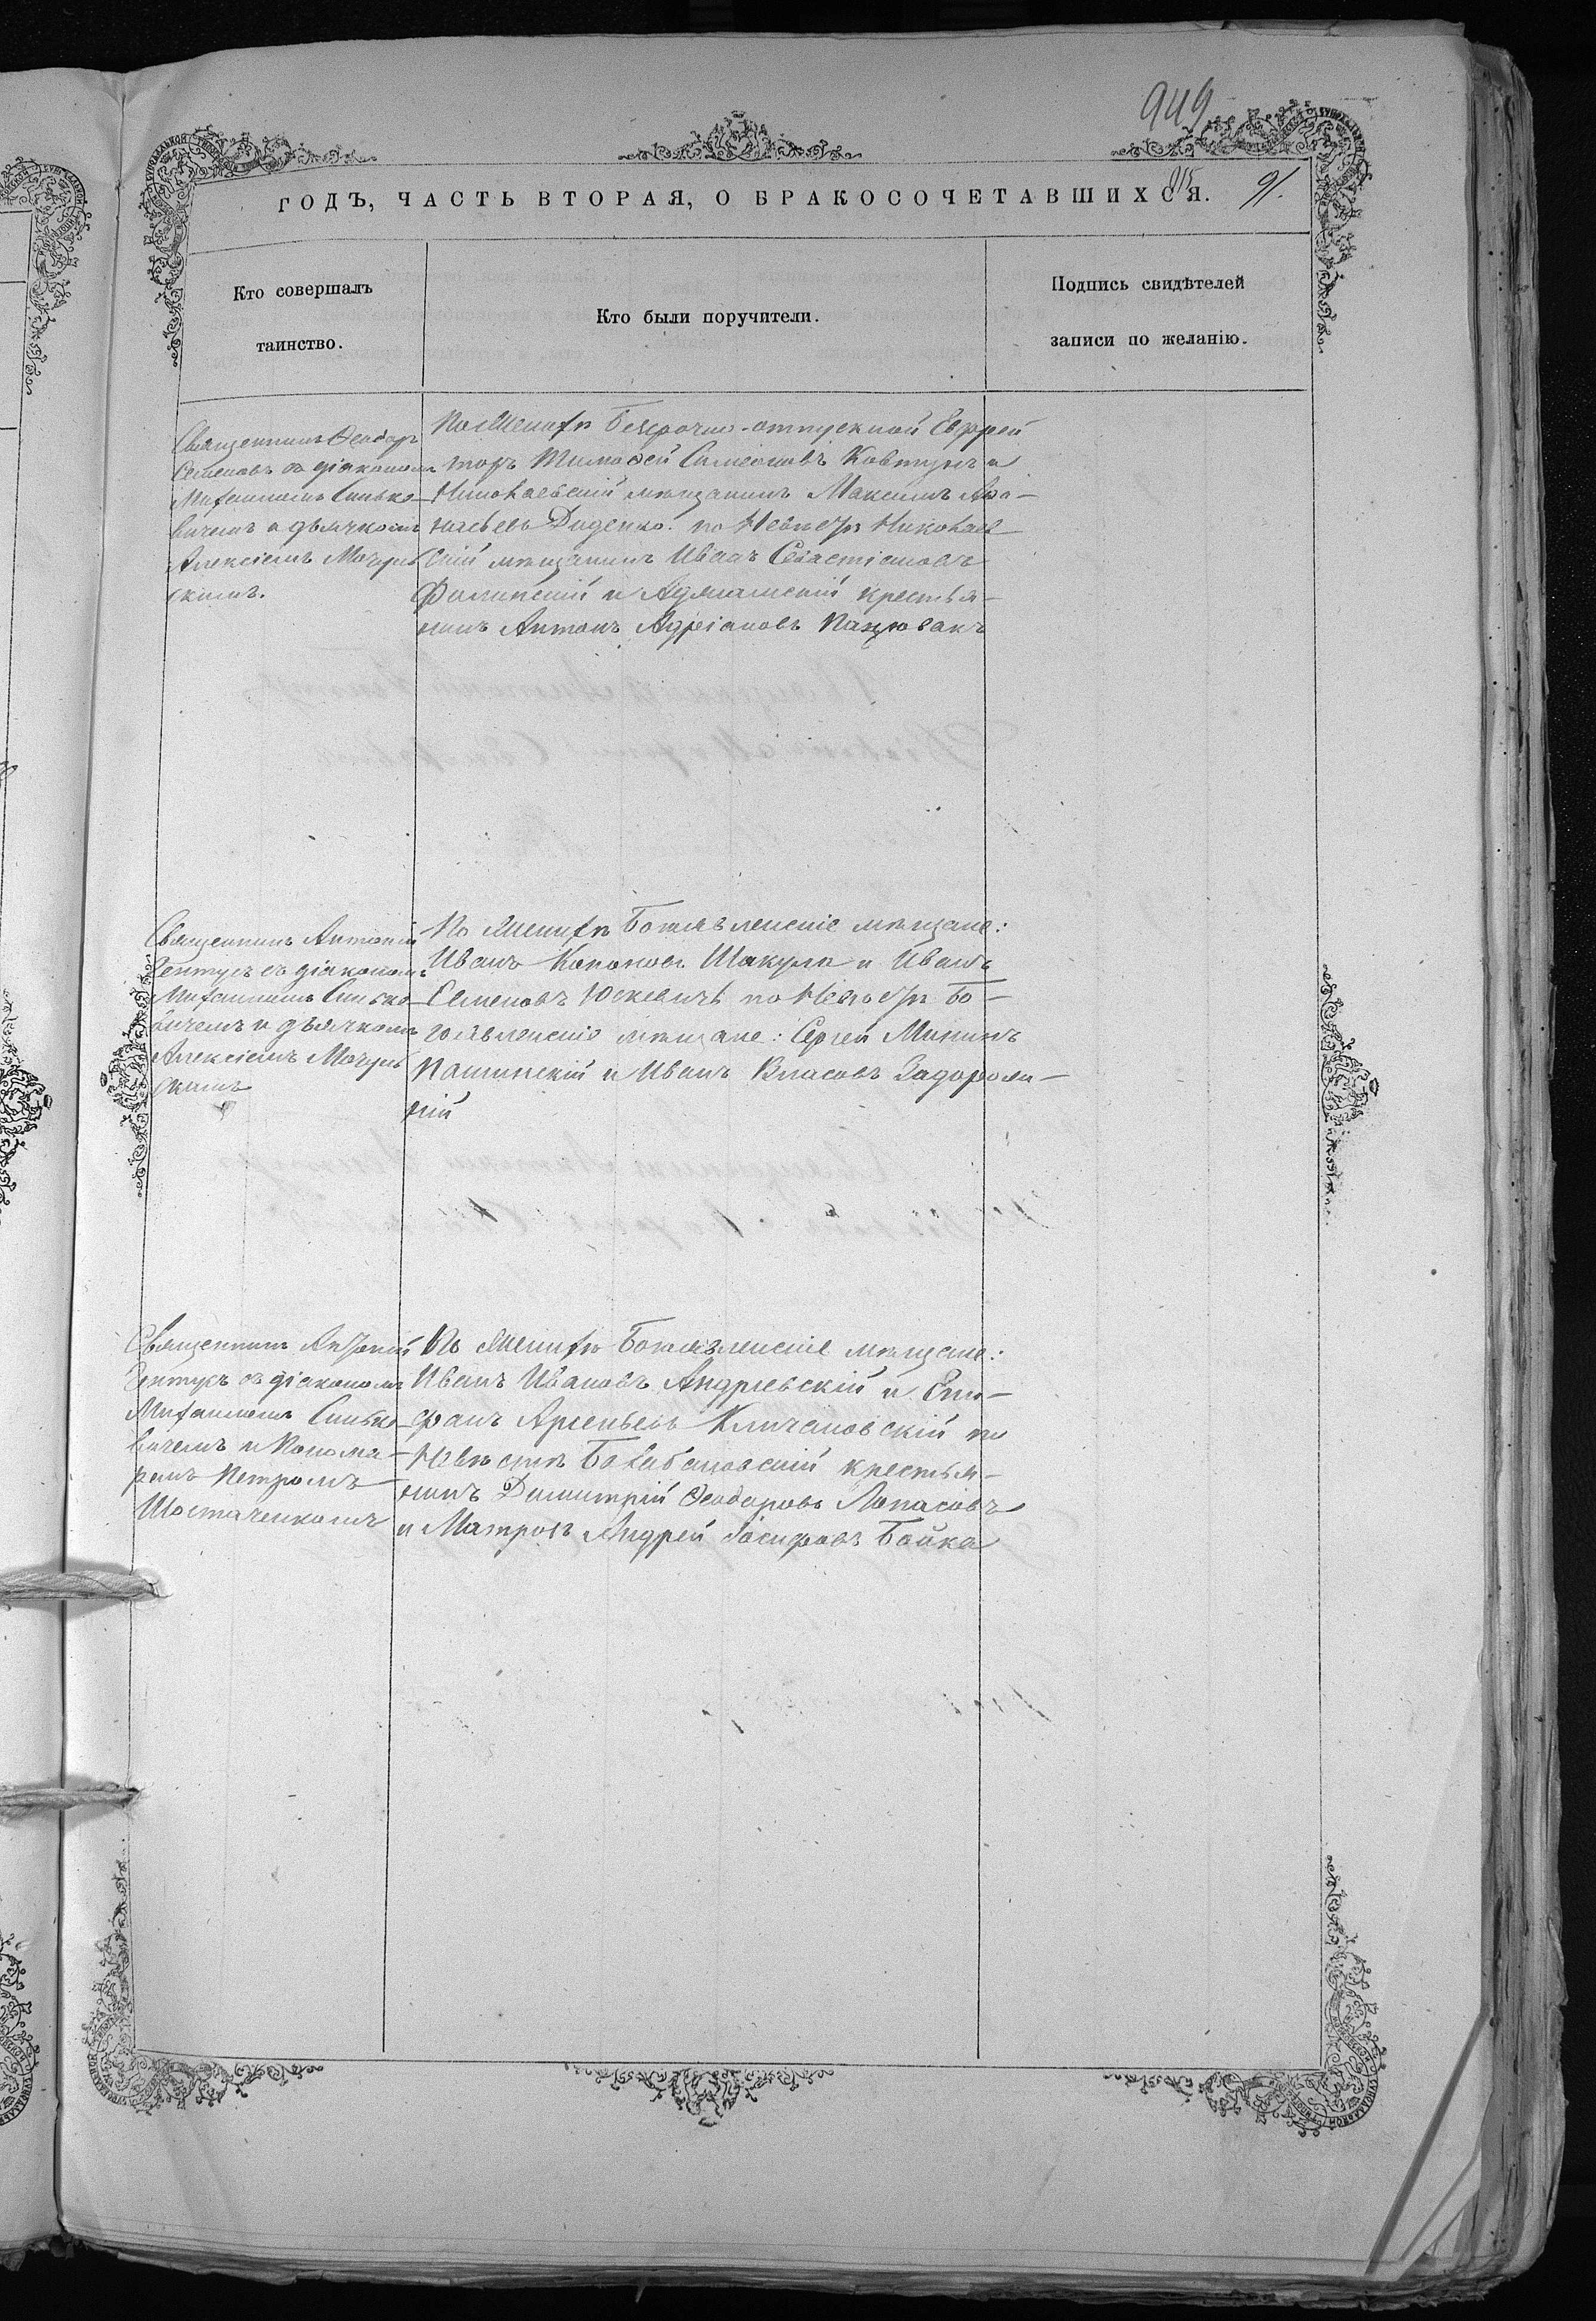 949
ГОДЪ, ЧАСТЬ ВТОРАЯ, О БРАКОСОЧЕТАВШИХСЯ.
91.
Кто совершалъ
таинство.
Кто были поручители.
Подпись свидѣтелей
записи по желанію.
Священникъ Ѳеодоръ
Семеновъ съ діакономъ
Михаиломъ Синьке-
вичемъ и дьячкомъ
Алексіемъ Мочуль
скимъ.
По Женихѣ Безсрочно-отпускной Ефрей
торъ Тимоѳей Симеоновъ Ковтунъ и
Николаевскій мѣщанинъ Максимъ Аѳа-
насьевъ Диденко. по Невѣстѣ Николаев
скій мѣщанинъ Иванъ Севастіановъ
Филипскій и крестья-
нинъ Антонъ Адріановъ
Священникъ Антоній
съ діакономъ
Михаиломъ Синьке-
вичемъ и дьячкомъ
Алексіемъ Мочуль
скимъ
По Женихѣ Богоявленскіе мѣщане:
Иванъ Кононовъ Шакула и Иванъ
Семеновъ Юскевичъ по Невѣстѣ Бо-
гоявленскіе мѣщане: Сергей Мининъ
Пашинскій и Иванъ Власовъ Задорож-
ній
Священникъ Антоній
съ діакономъ
Михаиломъ Синьке-
вичемъ и Понома-
ремъ Петромъ
Шостаченкомъ
По Женихѣ Богоявленскіе мѣщане:
Иванъ Ивановъ Андріевскій и Епи-
фанъ Арсеньевъ Кличановскій по
Невѣстѣ Балабановскій крестья-
нинъ Димитрій Ѳеодоровъ Лопасовъ
и Матросъ Андрей Іосифовъ Бойко